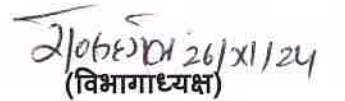 26/XI/24
(विभागाध्यक्ष)